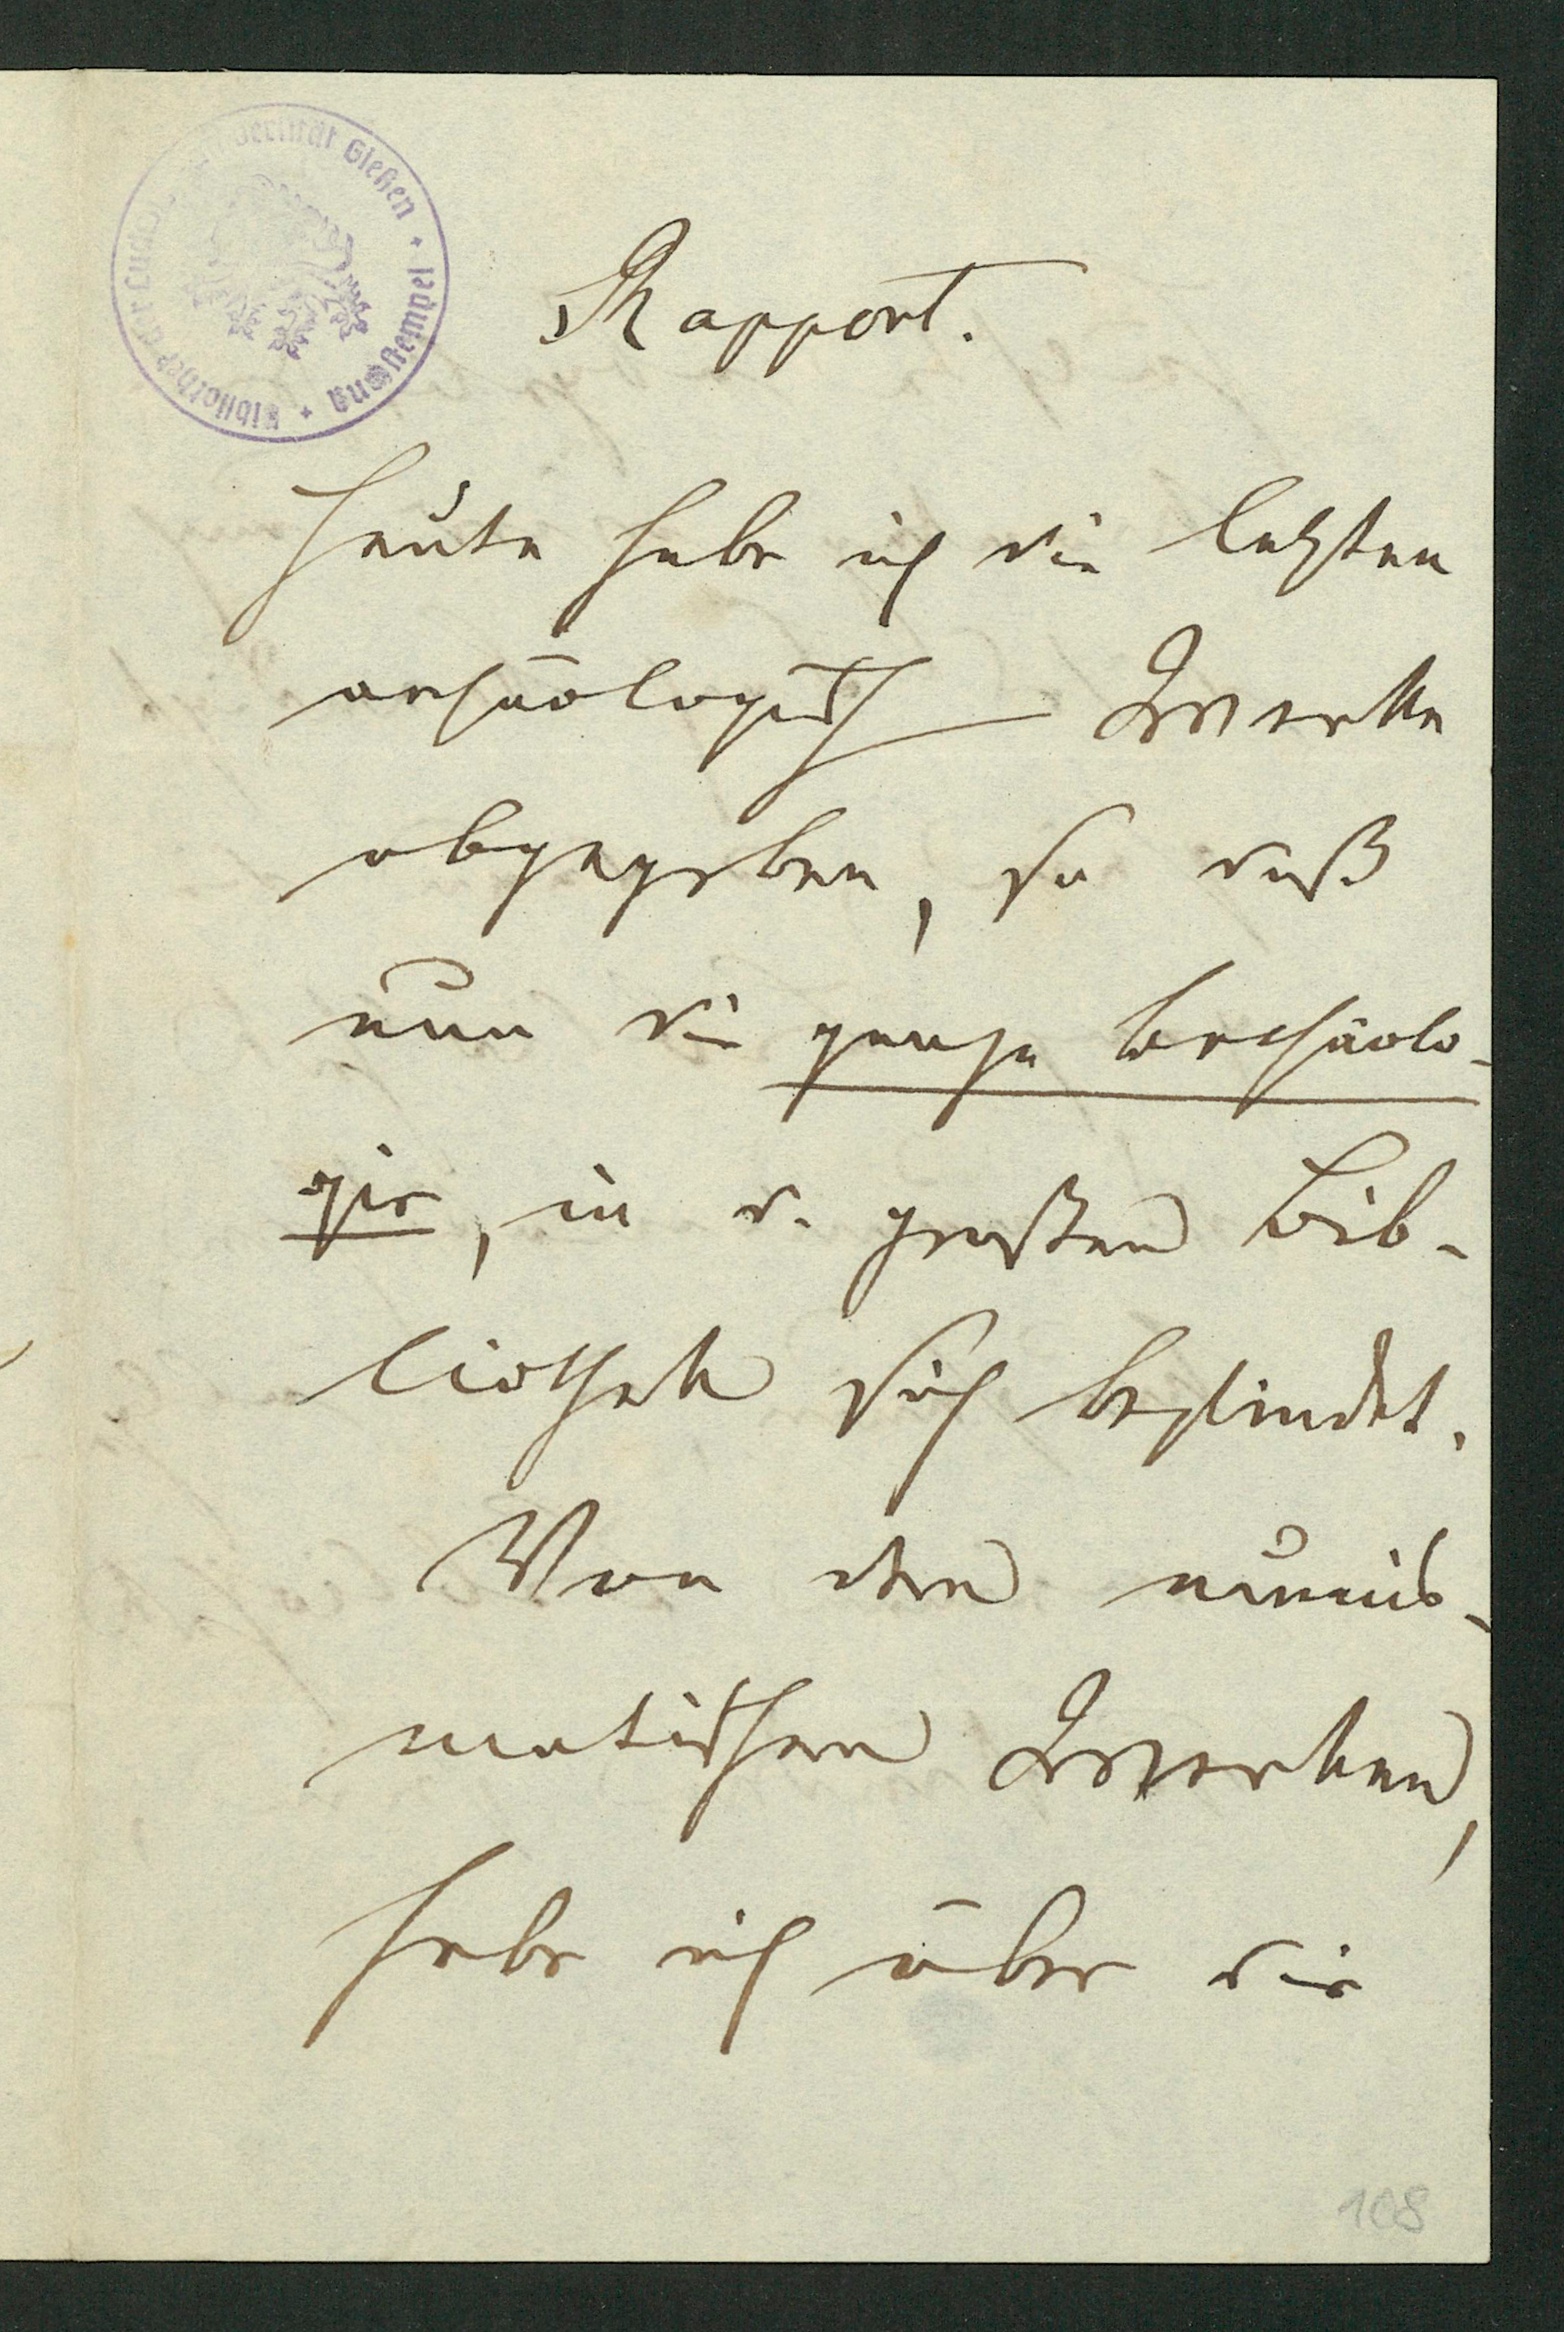 Bibliothek der Ludwigs-Universität Gießen
Ausstempel
Rapport.
Heute habe ich die letzten
archäologisch Werke
abgegeben, so daß
nun die ganze Archäolo-
gie, in d. großen Bib-
liothek sich befindet.
Von den numis-
matischen Werken,
habe ich über die
108